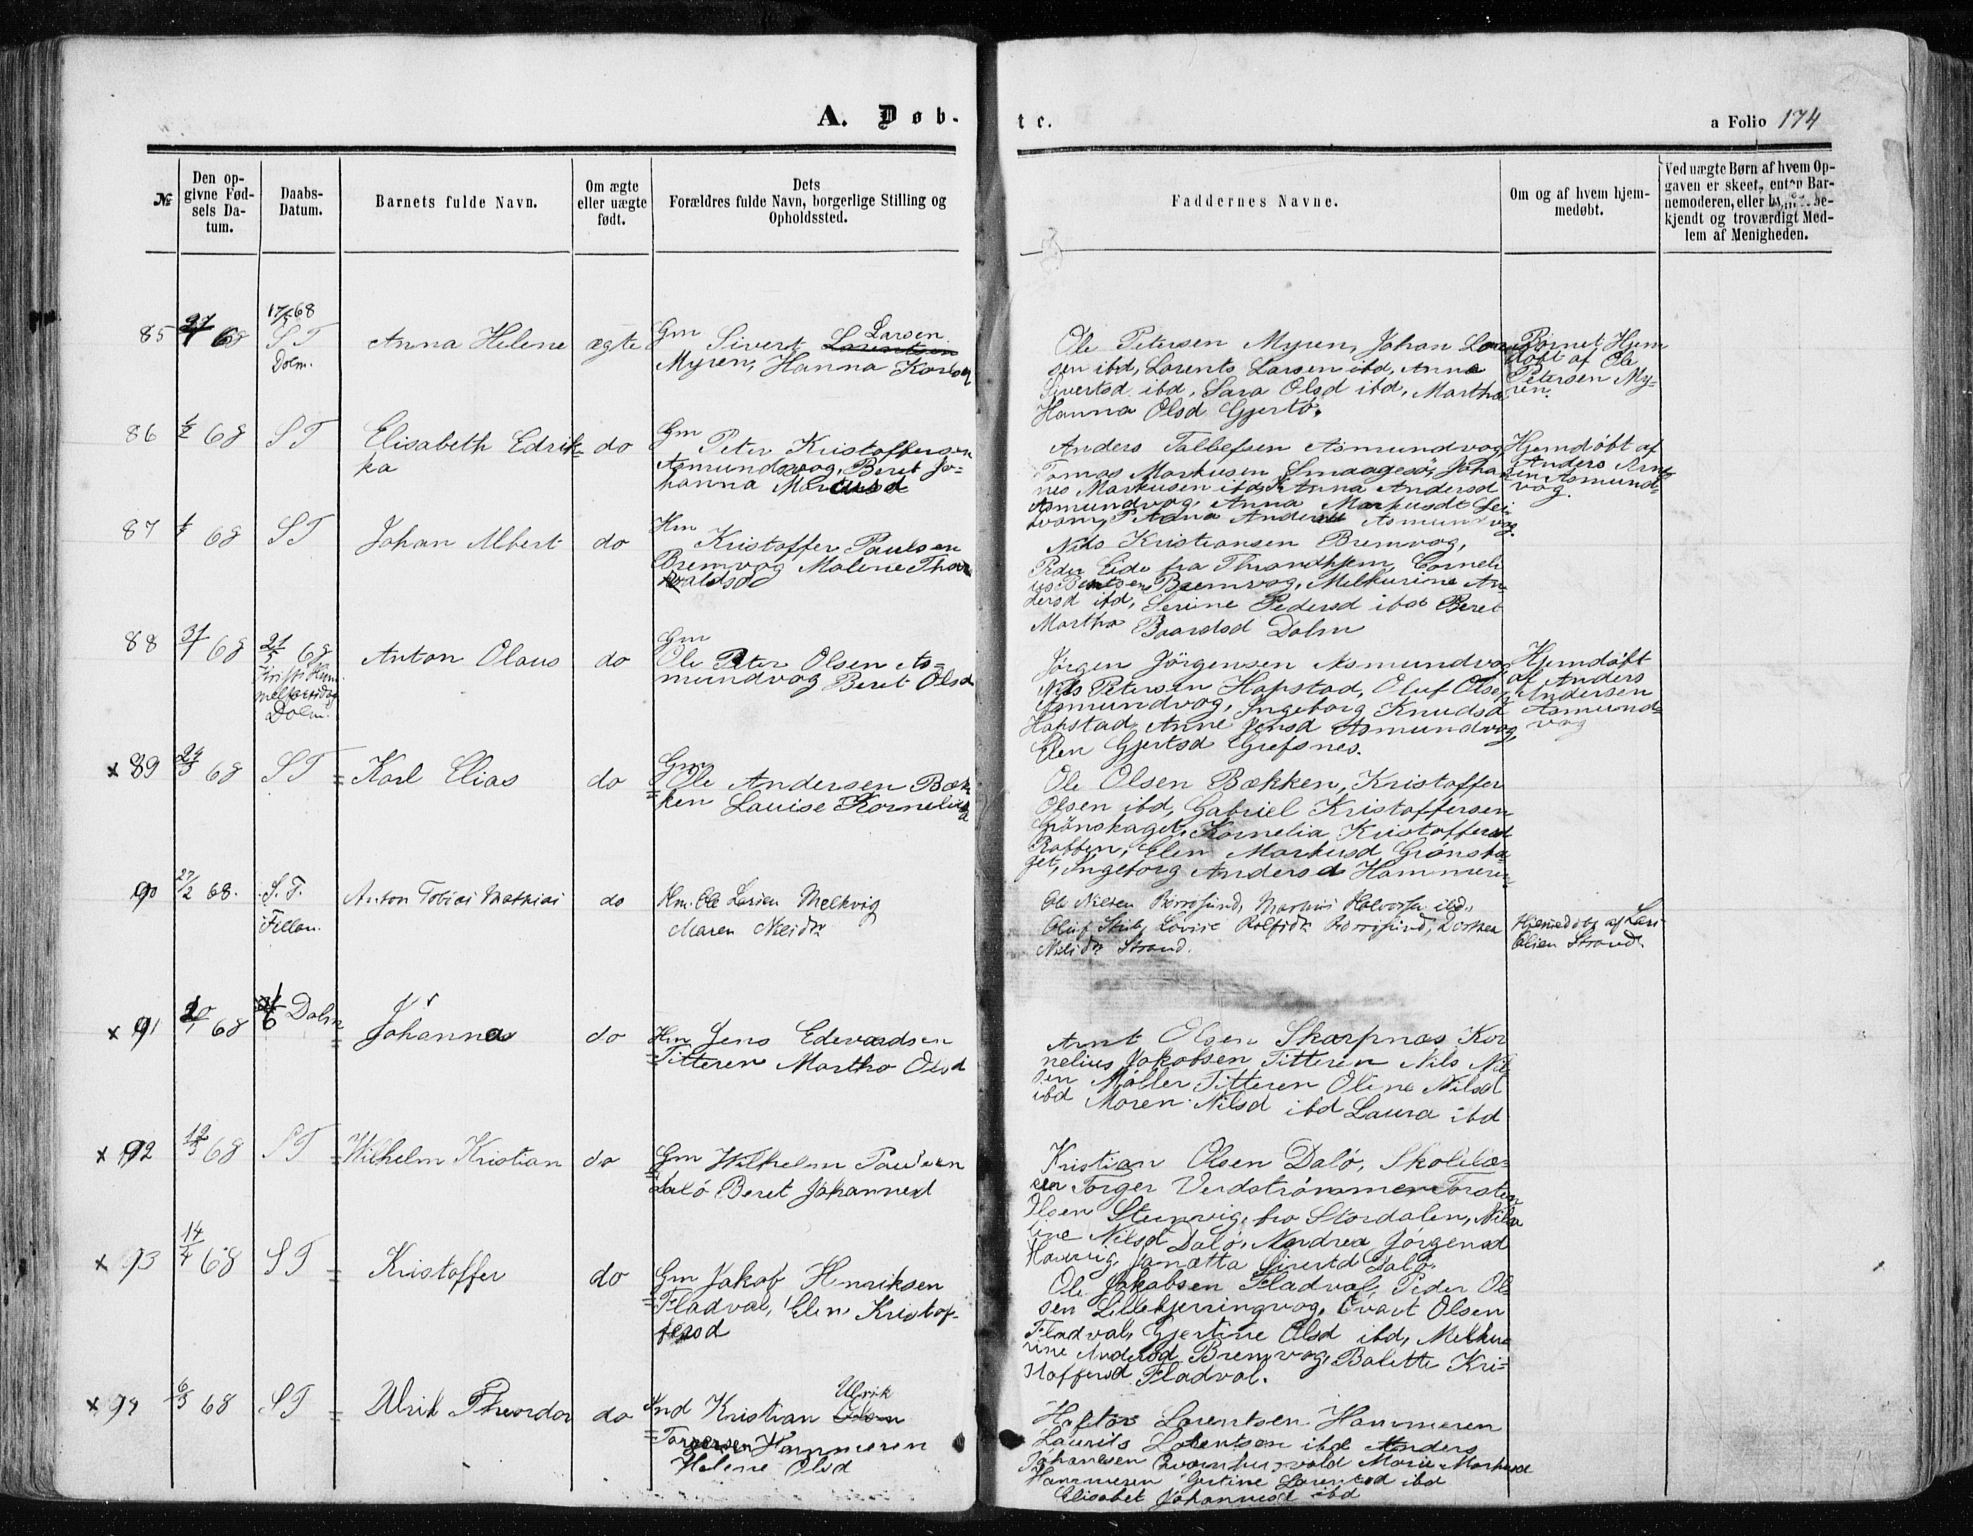 A. Døb-
te.
a Folio 174
№
Den op-
givne Fød-
sels Da-
tum.
Daabs-
Datum.
Barnets fulde Navn.
Om ægte
eller uægte
født.
Dets
Forældres fulde Navn, borgerlige Stilling og
Opholdssted.
Faddernes Navne.
Om og af hvem hjem-
medøbt.
Ved uægte Børn af hvem Op-
gaven er skeet, enten Bar-
nemoderen, eller
kjendt og troværdigt Med-
lem af Menigheden.
85 68
17/5 68
ST
Dolm.
Anna Helene
ægte
Gm Sivert Larsen
Myren, Hanna
Ole Petersen Myren, Johan
sen ibd, Lorents Larsen ibd, Anna
Sivertsd ibd, Sara Olsd ibd, Martha
Hanna Olsd Gjertø.
Barnet Hjem
døbt af Ole
Petersen My-
ren.
86 68
ST
Elisabeth Edrik-
ka
do
Gm Peter Kristoffersen
Asmundvog, Beret Jo-
hanna
Anders Asmundvog
Tomas Markusen Smaagesø, Joha
nes Markusen ibd, Anna Andersd
Asmundvog, Anna
Anna Asmundvog.
Hjemdøbt af
Anders
Asmund-
vog.
87 68
ST
Johan Albert
do
Hm Kristoffer Paulsen
Bremvog Malene Thor
valdsd
Nils Kristiansen Bremvog,
Peder Eide fra Throndhjem, Corneli
us Bremvog, Melkurine An-
dersd ibd, Serine Pedersd ibd Beret
Martha Baardsd Dolm
88 31/1 68
21/5 68
Kristi Him
melfartsdag
Dolm.
Anton Olaus
do
Gm
Ole Peter Olsen As-
mundvog Beret Olsd
Jørgen Jørgensen Asmundvog
Nils Petersen Hapstad, Oluf Olsen
Asmundvog, Ingeborg Knudsd
Hapstad Anne Jensd Asmundvog,
Elen Gjertsd Grefsnes.
Hjemdøbt
af Anders
Andersen
Asmund-
vog
x 89 24/3 68
ST
Karl Elias
do
Gm
Ole Andersen Bæk
ken Louise Kornelia
Ole Olsen Bækken, Kristoffer
Olsen ibd, Gabriel Kristoffersen
Grønskaget, Kornelia Kristoffersd
Rabben, Elen Markusd Grønska-
get, Ingeborg Andersd Hammeren
90 27/2 68.
S.T.
Fillan.
Anton Tobias Mathias
do
Hm. Ole Larsen Melkvig
Maren
Ole Nilsen Borrøsund, Markus Halvorsen ibd,
Oluf Lovise Borrøsund, Dorthea
Strand.
Hjemmedøbt af Lars
Olsen Strand.
x 91 68
Dolm
Johanna
do
Hm Jens Edevardsen
Titteren Martha Olsd
Arnt Olsen Skarpnæs Kor
nelius Jakobsen Titteren Nils Nil
sen Møller Titteren Oline Nilsd
ibd Maren Nilsd ibd Laura ibd
x 92 12/3 68
ST
Wilhelm Kristian
do
Gm Wilhelm Paulsen
Dalø Beret Johannesd
Kristian Olsen Dalø, Skolelæ-
rer Torger Verdstrømmen Torsten
Olsen Steinvig, fra Stordalen,
Nilsd Dalø, Andrea Jørgensd
Havvig, Janætta Sivertsd Dalø.
x 93 14/4 68
ST
Kristoffer
do
Gm Jakob Henriksen
Fladval, Elen Kristof-
fersd
Ole Jakobsen Fladval, Peder Ol
sen Lillekjerringvog, Evart Olsen
Fladval, Gjertine Olsd ibd, Melku
rine Andersd Bremvog, Balette Kri-
stoffersd Fladval.
x 94 6/3 68
ST
Ulrik Theordor
do
Ind Kristian Ulrik
Torgersen Hammeren
Helene Olsd
Hammeren
Lorentsen ibd Anders
Johansen Marie Markusd
Hammeren Gertine Lorentsd ibd
Elisabet Johannesd ibd